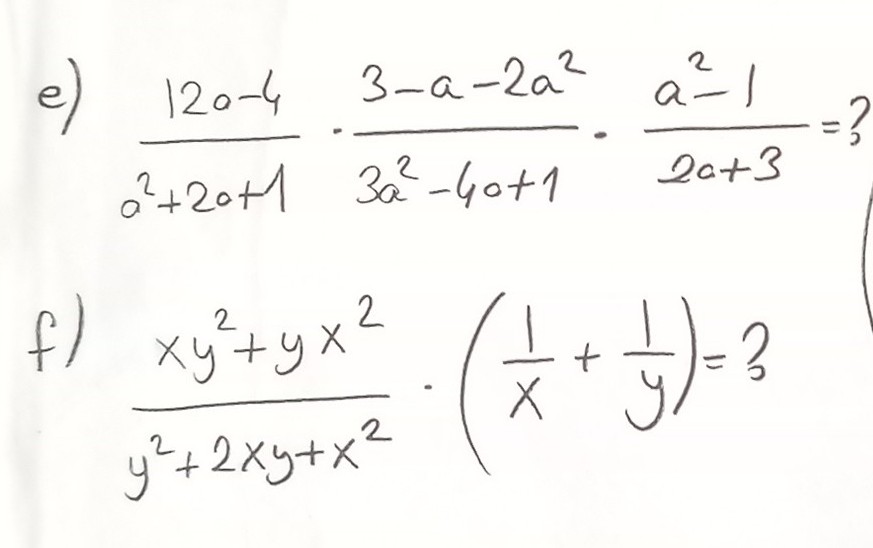 e) \frac{12a-4}{a^2+2a+1} \cdot \frac{3-a-2a^2}{3a^2-4a+1} \cdot \frac{a^2-1}{2a+3} = ?
f) \frac{xy^2+yx^2}{y^2+2xy+x^2} \cdot \left(\frac{1}{x}+\frac{1}{y}\right) = ?